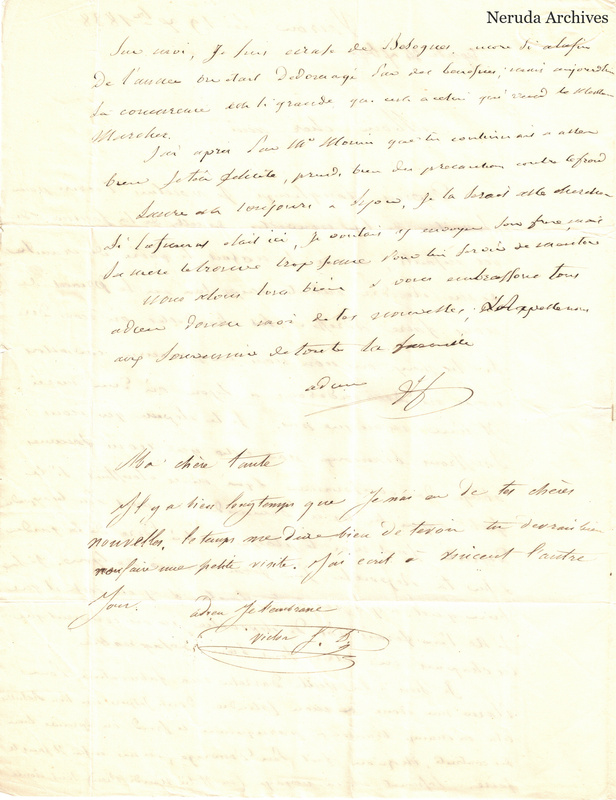 Neruda Archives
sur moi, Je suis ecrasé de Besognes, encore si a la fin
De l'année on était Dedomagé par des benefices, mais aujourdhui
La concurence est si grande que c'est à celui qui vend le Meilleur
Marchez.
J'ai apris par Mr que tu continuais a
bien Je t'en felicite, prends bien des precaution contre le froid
est toujours a Dijon, Je la serais allé chercher
Si était ici, Je voulais y envoyer son frere, mais
Sa mere le trouve trop jeune pour lui servir de
nous allons tous bien & vous embrassons tous
adieu donne moi de tes nouvelles,
aux Souvenirs de toute la famille
adieu
Ma chère tante
Il y a bien longtemps que Je n'ai eu de tes chères
nouvelles. le temps me dure bien de te voir tu devrais bien
nous faire une petite visite. J'ai écrit à Vincent l'autre
Jour.
adieu Je t'embrasse
Victor